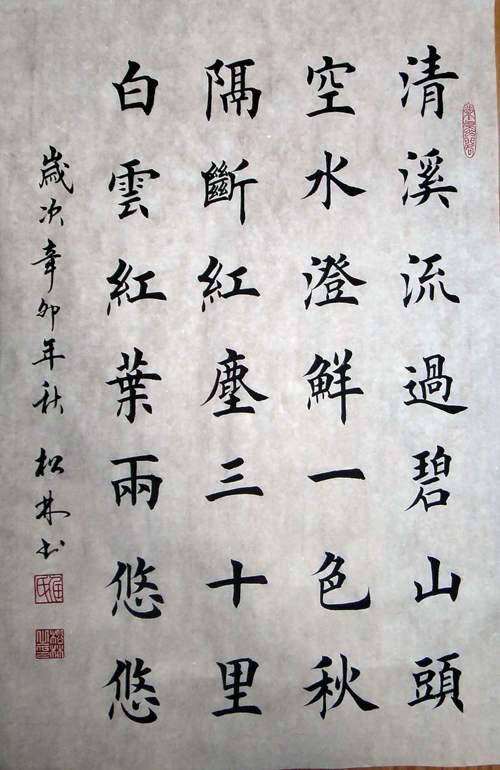 清溪流過碧山頭
空水澄鮮一色秋
隔斷紅塵三十里
白雲紅葉兩悠悠
歲次辛卯年秋 松林书